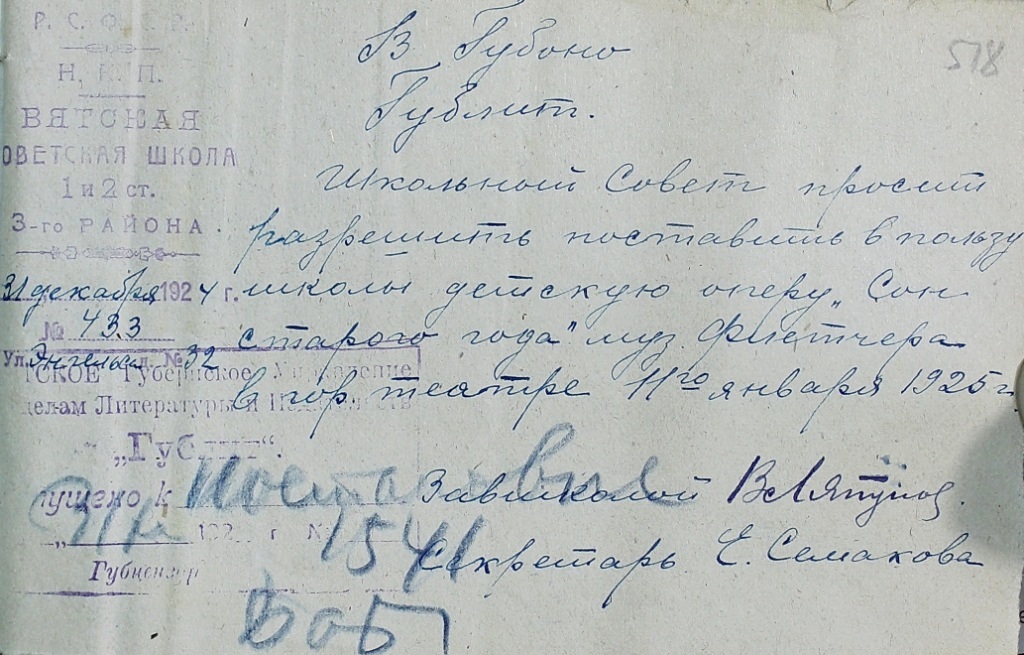 Р. С. Ф. С. Р.
Н. К. П.
ВЯТСКАЯ
ОВЕТСКАЯ ШКОЛА
1 и 2 ст.
3-го РАЙОНА.
31 декабря 1924 г.
№ 433
Ул. Энгельса д. № 32
518
В Губоно
Гублит.
Школьный Совет просит
разрешить поставить в пользу
школы детскую оперу „Сон
старого года" муз. Флетчера
в гор театре 11го января 1925 г.
Завшколой
Секретарь Е. Семакова
ТСКОЕ Губернское Управление
делам Литературы и Издательств
„Гублит".
пущено к Постановке
31/XII 192 г № 1541
Губцензор